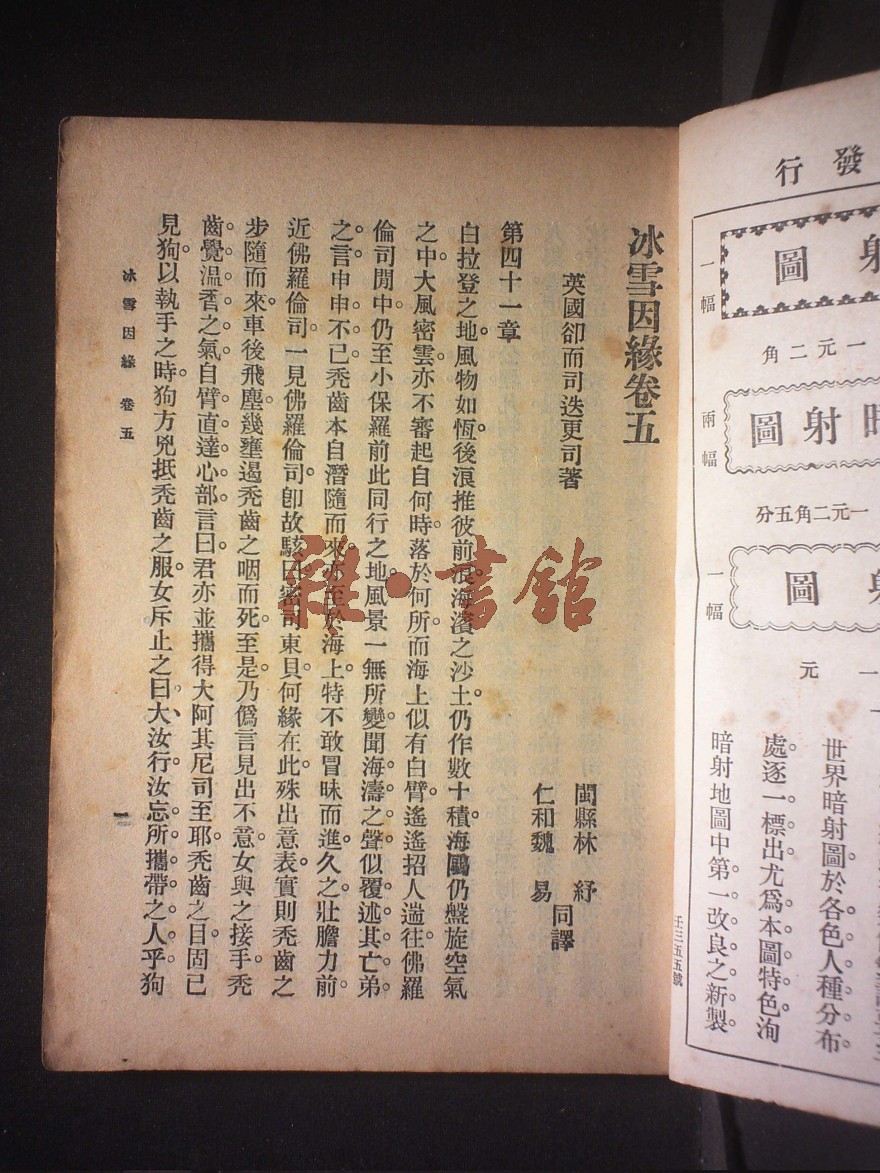 發行
圖
一幅
一元二角
暗射圖
兩幅
一元二角五分
圖
一幅
一元
世界暗射圖於各色人種分布。
處。逐一標出。尤爲本圖特色。洵
暗射地圖中第一改良之新製。
壬三五五號
冰雪因緣卷五
英國卻而司迭更司著
閩縣林 紓
仁和魏 易
同譯
第四十一章
白拉登之地。風物如恆。後浪推彼前浪。海濱之沙土。仍作數十積。海鷗仍盤旋空氣
之中。大風密雲。亦不審起自何時。落於何所。而海上似有白臂遙遙招人遄往。佛羅
倫司閒中。仍至小保羅前此同行之地。風景一無所變。聞海濤之聲。似覆述其亡弟
之言。申申不已。禿齒本自潛隨而來。亦至於海上。特不敢冒昧而進。久之壯膽力前。
近佛羅倫司。一見佛羅倫司。卽故駭曰。密司東貝。何緣在此。殊出意表。實則禿齒之
步隨而來。車後飛塵。幾壅遏禿齒之咽而死。至是乃僞言見出不意。女與之接手。禿
齒。覺溫香之氣。自臂直達心部。言曰。君亦並攜得大阿其尼司至耶。禿齒之目。固已
見狗。以執手之時。狗方兇抵禿齒之服。女斥止之曰。大。汝行。汝忘所攜帶之人乎。狗
冰雪因緣 卷五
一
雜·書館